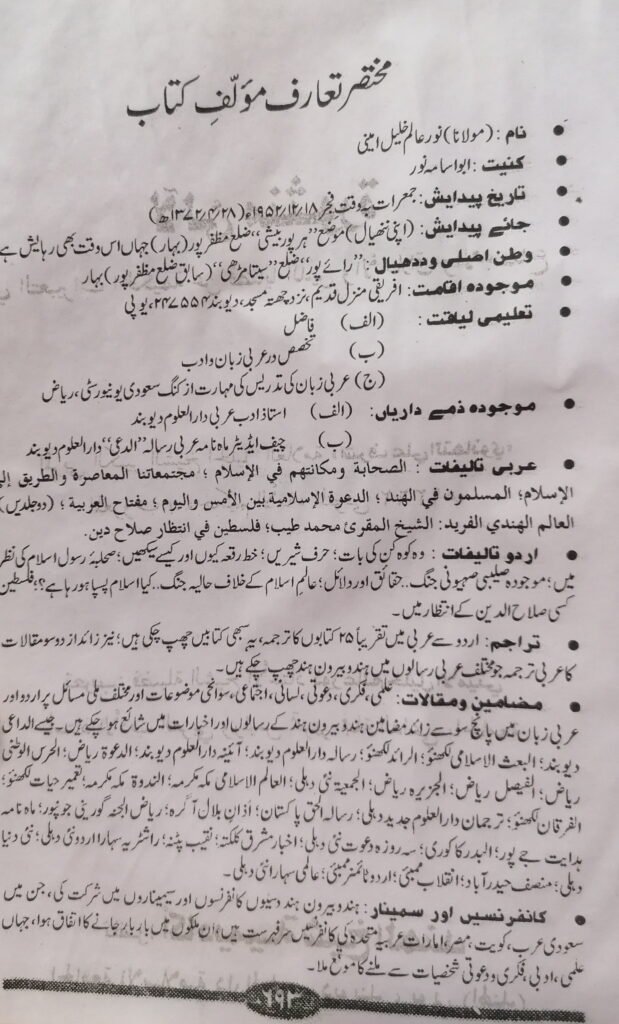 مختصر تعارف مؤلّفِ کتاب
● نام : (مولانا) نور عالم خلیل امینی
● کنیت : ابو اسامہ نور
● تاریخ پیدایش: جمعرات بہ وقت فجر ۱۸/۱۲/۱۹۵۲ء (۲۸/۴/۱۳۷۲ھ)
● جائے پیدایش: (اپنی ننھیال) موضع ”ہر پور بیشی“ ضلع مظفر پور (بہار) جہاں اس وقت بھی رہایش ہے
● وطن اصلی وددھیال : ”رائے پور“ ضلع ”سیتا مڑھی“ (سابق ضلع مظفر پور) بہار
● موجودہ اقامت: افریقی منزل قدیم، نزد چھتہ مسجد، دیوبند ۲۴۷۵۵۴، یوپی
● تعلیمی لیاقت : (الف) فاضل
(ب) تخصص در عربی زبان و ادب
(ج) عربی زبان کی تدریس کی مہارت از کنگ سعودی یونیورسٹی، ریاض
● موجودہ ذمے داریاں: (الف) استاذ ادب عربی دارالعلوم دیوبند
(ب) چیف ایڈیٹر ماہ نامہ عربی رسالہ ”الداعی“ دارالعلوم دیوبند
● عربی تالیفات : الصحابة ومكانتهم في الإسلام ؛ مجتمعاتنا المعاصرة والطريق إلى
الإسلام؛ المسلمون في الهند ؛ الدعوة الإسلامية بين الأمس واليوم ؛ مفتاح العربية ؛ (دو جلدیں)
العالم الهندي الفريد: الشيخ المقرئ محمد طيب؛ فلسطين في انتظار صلاح دين.
● اردو تالیفات : وہ کوہ کن کی بات ؛ حرف شیریں ؛ خط رقعہ کیوں اور کیسے سیکھیں؛ صحابۂ رسول اسلام کی نظر
میں ؛ موجودہ صلیبی صہیونی جنگ .. حقائق اور دلائل؛ عالم اسلام کے خلاف حالیہ جنگ .. کیا اسلام پسپا ہو رہا ہے؟؛ فلسطین
کسی صلاح الدین کے انتظار میں۔
● تراجم: اردو سے عربی میں تقریباً ۲۵ کتابوں کا ترجمہ، یہ سبھی کتابیں چھپ چکی ہیں؛ نیز زائد از دو سو مقالات
کا عربی ترجمہ جو مختلف عربی رسالوں میں ہند و بیرون ہند چھپ چکے ہیں۔
● مضامین ومقالات: علمی، فکری، دعوتی، لسانی، اجتماعی، سوانحی موضوعات اور مختلف ملی مسائل پر اردو اور
عربی زبان میں پانچ سو سے زائد مضامین ہند و بیرون ہند کے رسالوں اور اخبارات میں شائع ہو چکے ہیں۔ جیسے الداعی
دیوبند؛ البعث الاسلامی لکھنؤ؛ الرائد لکھنؤ؛ رسالہ دارالعلوم دیوبند؛ آئینہ دارالعلوم دیوبند؛ الدعوۃ ریاض؛ الحرس الوطنی
ریاض؛ الفیصل ریاض؛ الجزیرہ ریاض؛ الجمعیۃ نئی دہلی؛ العالم الاسلامی مکہ مکرمہ؛ الندوۃ مکہ مکرمہ؛ تعمیر حیات لکھنؤ؛
الفرقان لکھنؤ؛ ترجمان دارالعلوم جدید دہلی؛ رسالہ الحق پاکستان؛ اذانِ بلال آگرہ؛ ریاض الجنۃ گورینی جونپور؛ ماہ نامہ
ہدایت جے پور؛ البدر کاکوری؛ سہ روزہ دعوت نئی دہلی؛ اخبار مشرق کلکتہ؛ نقیب پٹنہ؛ راشٹریہ سہارا اردو نئی دہلی؛ نئی دنیا
دہلی؛ منصف حیدرآباد؛ انقلاب ممبئی؛ اردو ٹائمنر ممبئی؛ عالمی سہارا نئی دہلی۔
● کانفرنسیں اور سمینار: ہند و بیرون ہند دسیوں کانفرنسوں اور سیمیناروں میں شرکت کی، جن میں
سعودی عرب، کویت، مصر، امارات عربیہ متحدہ کی کانفرنسیں سرفہرست ہیں، ان ملکوں میں بار بار جانے کا اتفاق ہوا، جہاں
علمی، ادبی، فکری و دعوتی شخصیات سے ملنے کا موقع ملا۔